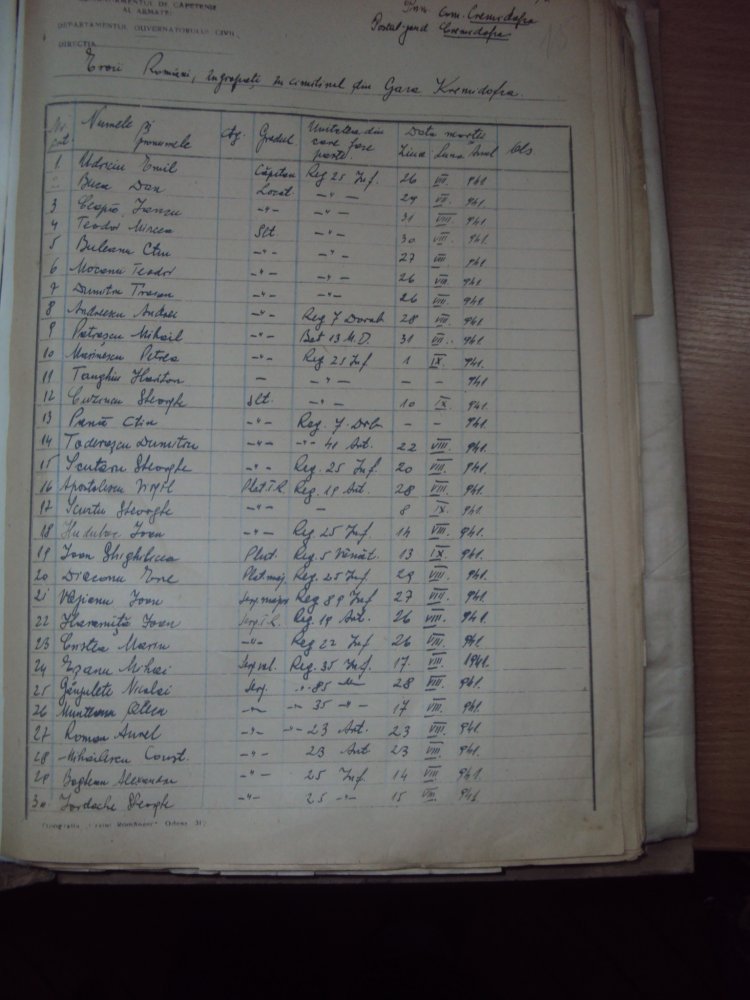 DEPARTAMENTUL GUVERNATORULUI CIVIL
DIRECŢIA
Com. Cremidofca
Postul jand Cremidofca
Eroii Români, îngropați în cimitirul din Gara Kremidofca.
Nr. crt Numele și pronumele Ctg. Gradul Unitatea din care face parte Data morței Ziua Luna Anul Obs
1 Udriciu Emil Căpitan Reg 25 Inf. 26 VIII. 941.
2 Buca Dan Locot. -"- 29 VIII. 941.
3 Iancu -"- -"- 31 VIII 941.
4 Teodor Mircea Slt -"- 30 VIII. 941.
5 Buleanu Ctin -"- -"- 27 VIII 941.
6 Mocanu Teodor -"- -"- 26 VIII. 941.
7 Dumitru Traian -"- -"- 26 VIII. 941.
8 Andreescu Andrei -"- Reg 7 Dorob 28 VIII. 941.
9 Petrașcu Mihail -"- Bat 13 M.D. 31 VIII. 941.
10 Marinescu Petrea -"- Reg 25 Inf 1 IX. 941.
11 Hariton — -"- — — 941
12 Gheorghe Slt. -"- 10 IX. 941.
13 Pană Ctin -"- Reg. 7. Drb - - 941.
14 Toderașcu Dumitru -"- -"- 41 Art. 22 VIII. 941.
15 Scutaru Gheorghe -"- Reg. 25 Inf 20 VIII. 941.
16 Apostolescu Virgil Plot T.R. Reg. 19 Art. 28 VIII. 941.
17 Scurtu Gheorghe -"- — 8 IX. 941.
18 Ioan -"- Reg. 25 Inf 14 VIII. 941.
19 Ioan Plut. Reg. 5 Vânăt. 13 IX. 941.
20 Diaconu Plut. maj. Reg. 25 Inf 29 VIII. 941.
21 Ioan Serg. major Reg 89 Inf 27 VIII. 941.
22 Ioan Serg. T.R. Reg. 19 Art. 26 VIII. 941.
23 Cristea Marin -"- Reg 22 Inf 26 VIII. 941
24 Ezanu Mihai Reg. 35 Inf. 17. VIII. 1941.
25 Nicolai Serg. -"- 85 -"- 28 VIII. 941.
26 Munteanu -"- -"- 35 -"- 17 VIII. 941.
27 Roman Aurel -"- -"- 23 Art. 23 VIII. 941
28 Mihăilescu Const. -"- 23 Art 23 VIII. 941.
29 Alexandru -"- 25 Inf. 14 VIII 941.
30 Iordache Gheorghe -"- 25 -"- 15 VIII. 941.